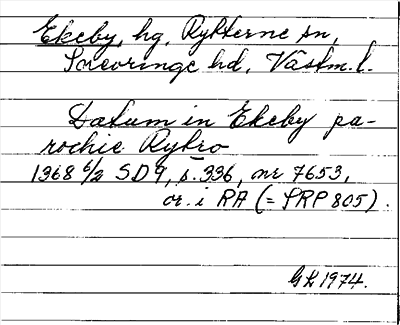 Ekeby, hg, Rytterne sn,
Snevringe hd, Västm. l.
Datum in Ekeby pa-
rochie Rytro
1368 6/2 SD 9, s. 336, nr 7653,
or. i RA (= SRP 805).
1974.